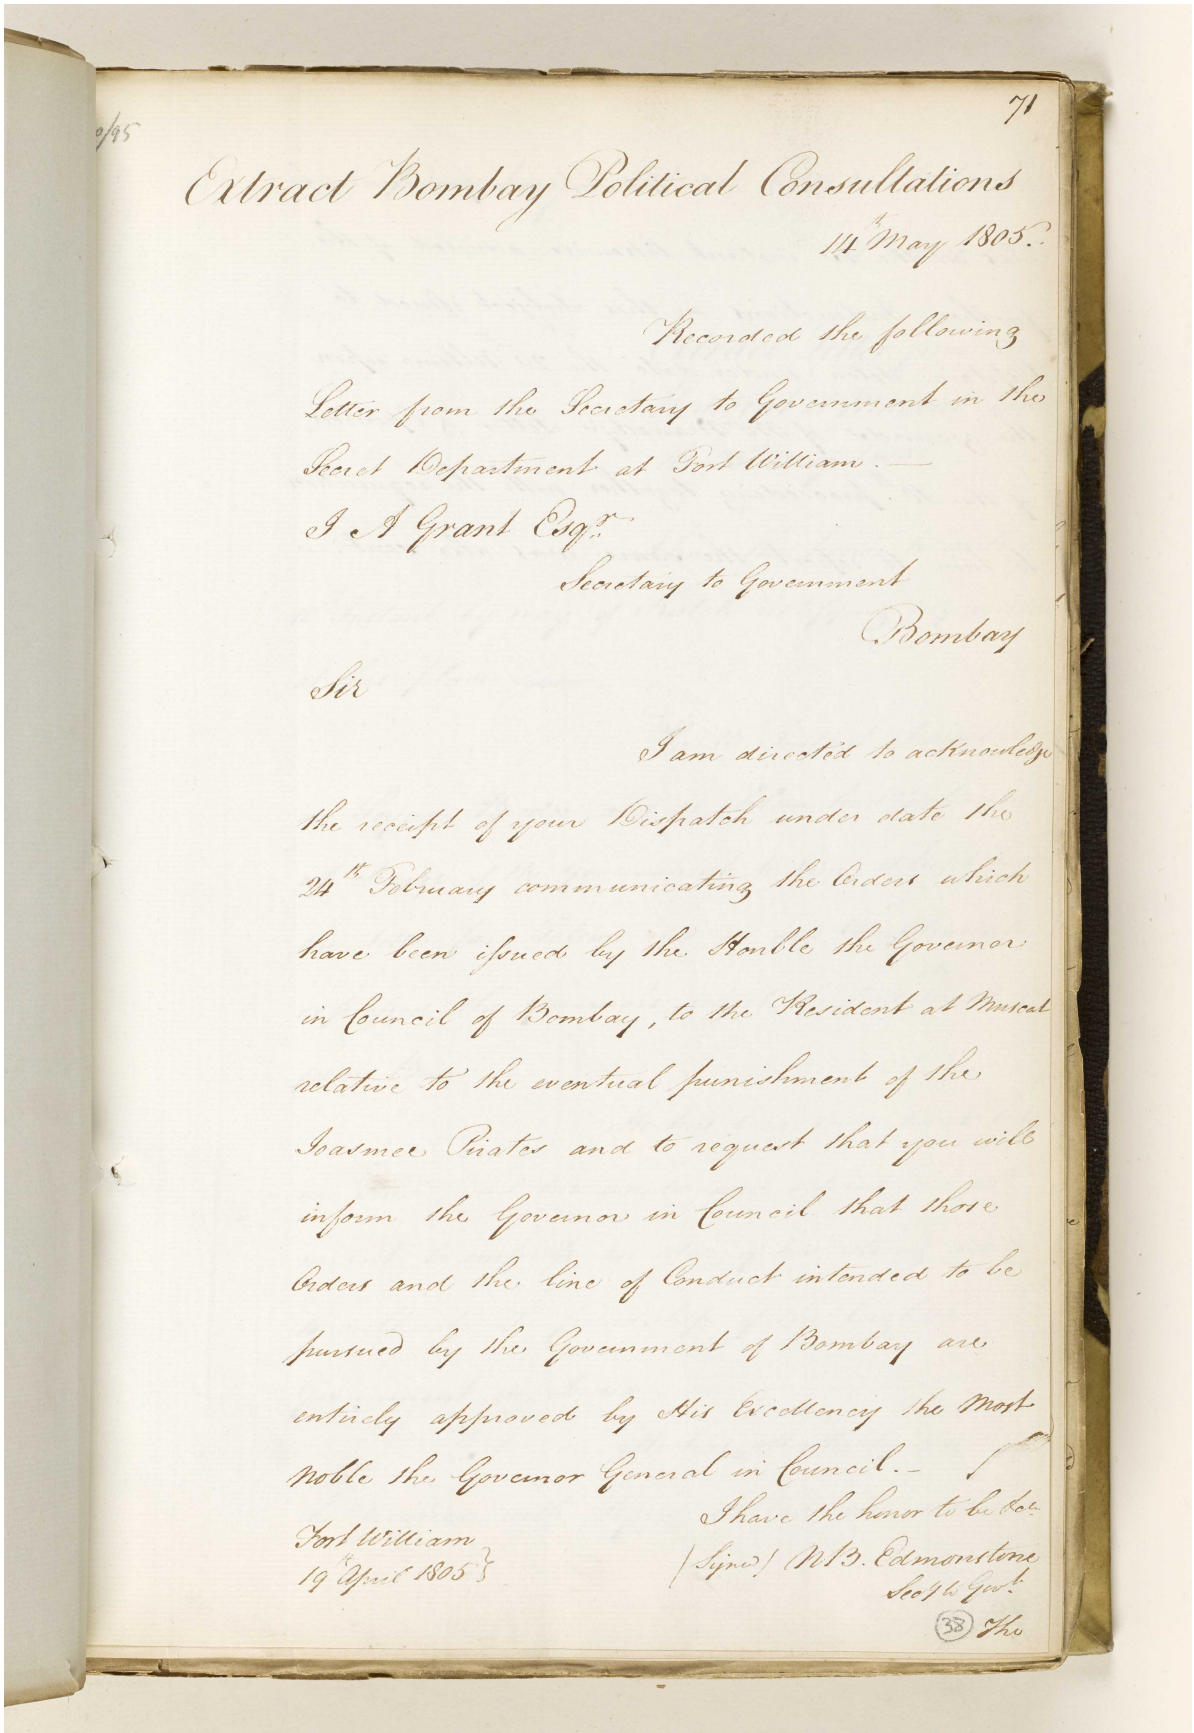 71
0/95
Extract Bombay Political Consultations
14th May 1805.
Recorded the following
Letter from the Secretary to Government in the
Secret Department at Fort William. —
J A Grant Esqr.
Secretary to Government
Bombay
Sir
I am directed to acknowledge
the receipt of your Dispatch under date the
24th February communicating the Orders which
have been issued by the Honble the Governor
in Council of Bombay, to the Resident at Muscat
relative to the eventual punishment of the
Joasmee Pirates and to request that you will
inform the Governor in Council that those
Orders and the line of Conduct intended to be
pursued by the Government of Bombay are
entirely approved by His Excellency the Most
Noble the Governor General in Council. —
I have the honor to be &ca
Fort William
19th April 1805
(Signed) N B. Edmonstone
Secy to Govt.
38 The